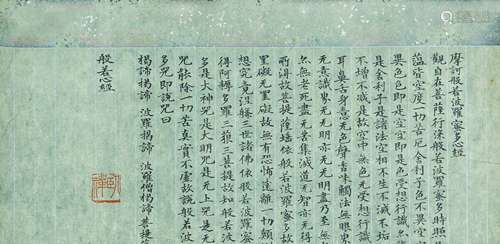 摩訶般若波羅蜜多心經
觀自在菩薩行深般若波羅蜜多時照
蘊皆空度一切苦厄舍利子色不異空
異色色即是空空即是色受想行識亦
是舍利子是諸法空相不生不滅不垢
不增不減是故空中無色无受想行識
耳鼻舌身意无色聲香味觸法無眼界
无意識界无无明亦无无明盡乃至無
亦无老死盡无苦集滅道无智亦无得
所得故菩提薩埵依般若波羅蜜多故
罣礙无罣礙故無有恐怖遠離一切顛
想究竟涅槃三世諸佛依般若波羅蜜
得阿耨多羅三藐三菩提故知般若波
多是大神咒是大明咒是无上咒是无
咒能除一切苦真實不虛故說般若波
多咒即說咒曰
揭諦揭諦 波羅揭諦 波羅僧揭諦菩提薩
般若心經